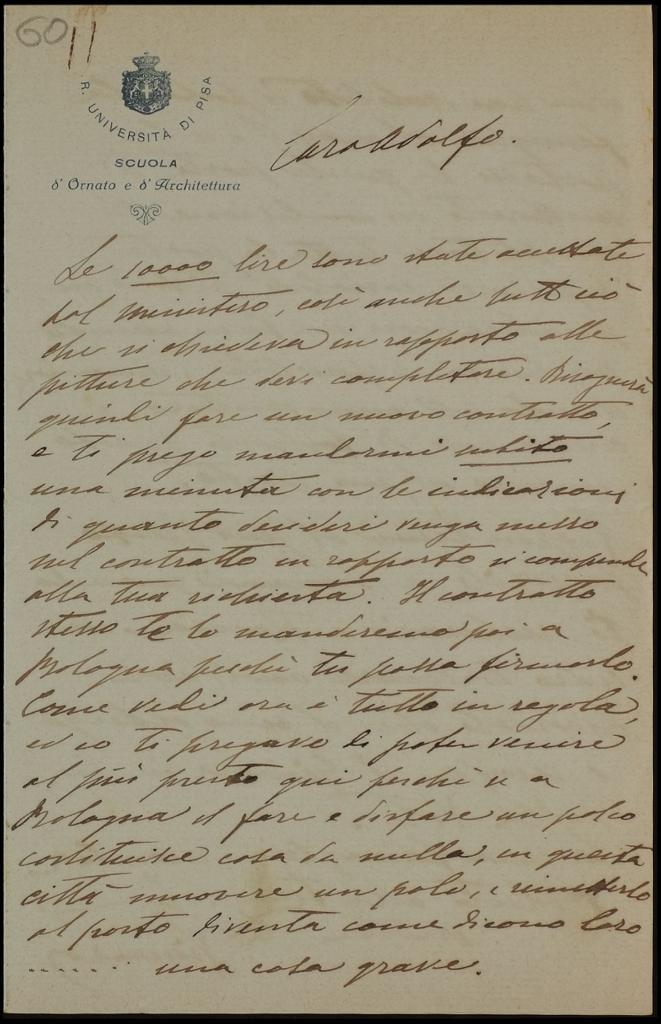 60
R. UNIVERSITÀ DI PISA
SCUOLA
d'Ornato e d'Architettura
Caro Adolfo.
Le 10000 lire sono state accettate
dal ministero, così anche tutt ciò
che si chiedeva in rapporto alle
pitture che devi completare. Bisognerà
quindi fare un nuovo contratto,
e ti prego mandarmi subito
una minuta con le indicazioni
di quanto desideri venga messo
nel contratto in rapporto si comprende
alla tua richiesta. Il contratto
stesso te lo manderemo poi a
Bologna perchè tu possa firmarlo.
Come vedi ora è tutto in regola,
ed io ti pregavo di poter venire
al più presto qui perchè se a
Bologna il fare e disfare un palco
costituisce cosa da nulla, in questa
città muovere un palo, e rimetterlo
al posto diventa come dicono loro
....... una cosa grave.